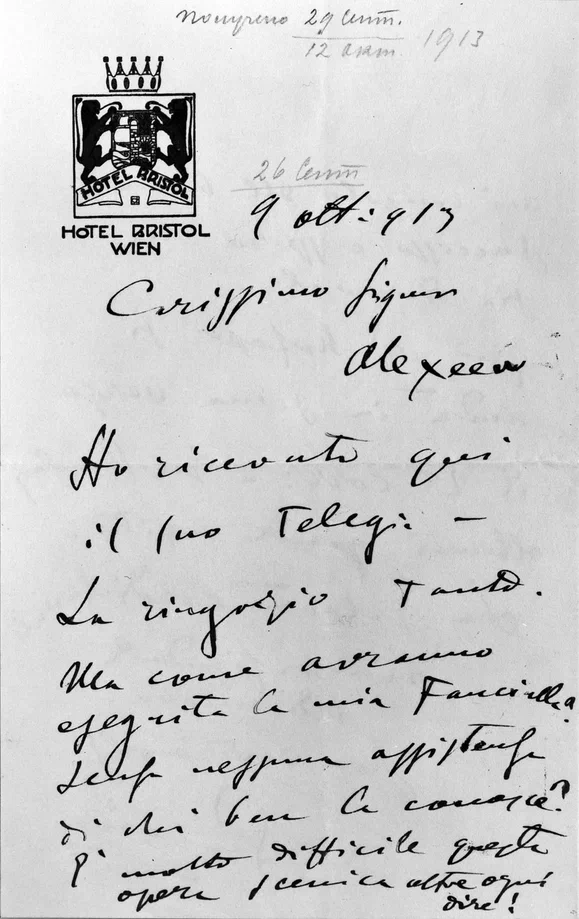 Получено 29 Сент.
12 окт. 1913
26 Сент
HOTEL BRISTOL
HOTEL BRISTOL
WIEN
9 ott: 913
Carissimo Signor
Alexeew
Ho ricevuto qui
il suo Telegr: —
La ringrazio tanto.
Ma come avranno
eseguita la mia Fanciulla?
senza nessuna assistenza
di chi ben la conosce?
È molto difficile questa
opera scenica oltre ogni
dire!